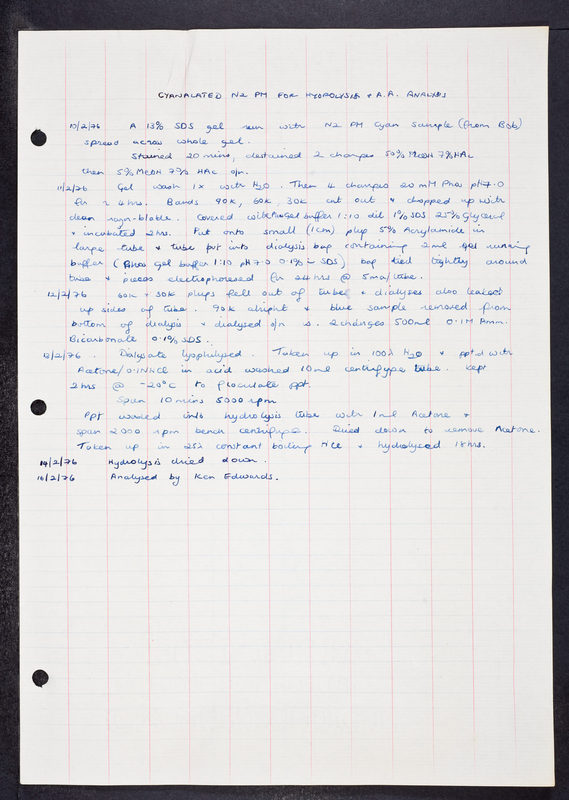 CYANALATED N2 PM FOR HYDROLYSIS + A.A. ANALYSIS
10/2/76 A 13% SDS gel run with N2 PM Cyan Sample (from Bob)
spread across whole gel.
Stained 20 mins, destained 2 changes 50% MeOH 7% HAc
then 5% MeOH 7% HAc o/n.
11/2/76 Gel wash 1x with H2O. Then 4 changes 20mM Phos pH7.0
for 2 4hrs. Bands 90K, 60K, 30K cut out + chopped up with
clean razor-blade. Covered with gel buffer 1:10 dil 1% SDS 25% Glycerol
+ incubated 2hrs. Put onto small (1cm) plug 5% Acrylamide in
large tube + tube put into dialysis bag containing 2ml gel running
buffer (Phos gel buffer 1:10 pH 7.0 0.1% SDS) bag tied tightly around
tube + pieces electrophoresed for 24hrs @ 5ma/tube.
12/2/76 60K + 30K plugs fell out of tubes + dialyses also leaked
up sides of tube. 90K alright + blue sample removed from
bottom of dialysis + dialysed o/n 2 changes 500ml 0.1M Amm.
Bicarbonate 0.1% SDS.
13/2/76. Dialysate lyophilysed. Taken up in 100λ H2O + pptd with
Acetone/0.1N HCl in acid washed 10ml centrifuge tube. Kept
2hrs @ -20°C to flocculate ppt.
Spun 10 mins 5000 rpm
Ppt washed into hydrolysis tube with 1ml Acetone +
spun 2000 rpm bench centrifuge. Dried down to remove Acetone.
Taken up in 25λ constant boiling HCl + hydrolysed 18hrs.
14/2/76 Hydrolysis dried down.
16/2/76 Analysed by Ken Edwards.